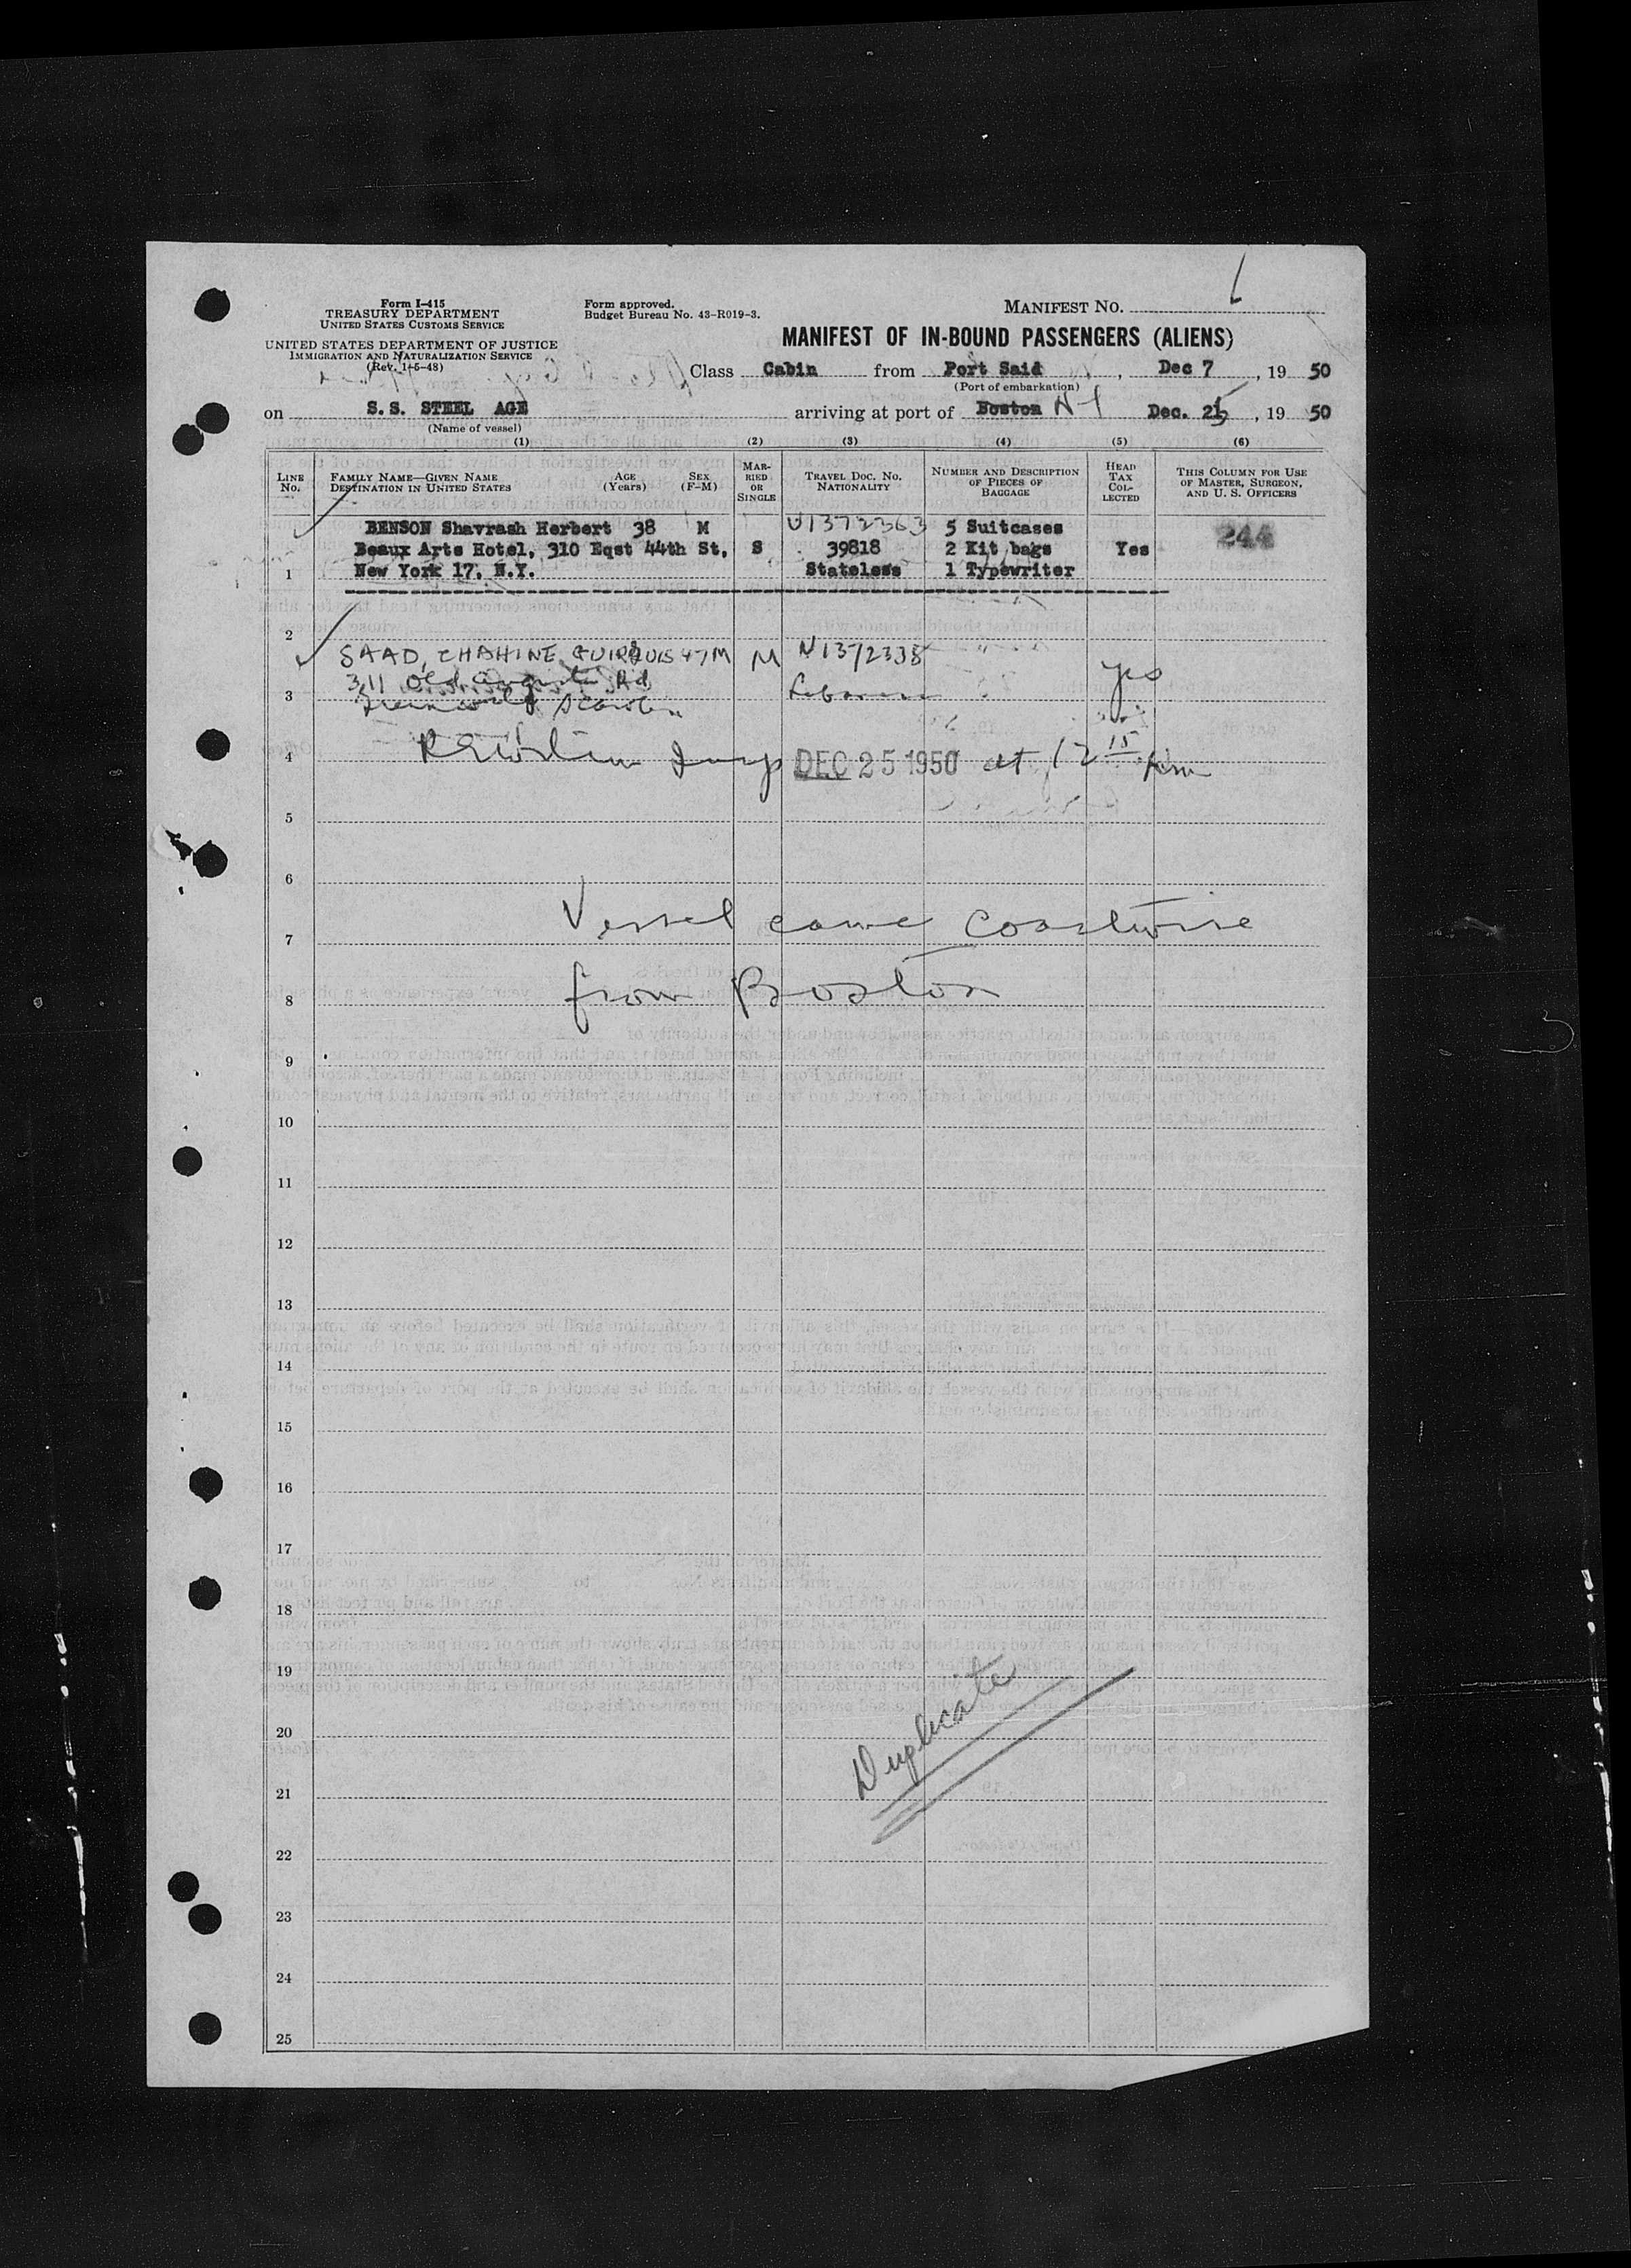 Form I-415
TREASURY DEPARTMENT
UNITED STATES CUSTOMS SERVICE
UNITED STATES DEPARTMENT OF JUSTICE
IMMIGRATION AND NATURALIZATION SERVICE
(Rev. 1-5-48)
Form approved.
Budget Bureau No. 43-R019-3.
MANIFEST NO. 1
MANIFEST OF IN-BOUND PASSENGERS (ALIENS)
Class Cabin from Port Said, Dec 7, 19 50
(Port of embarkation)
on S.S. STEEL AGE arriving at port of Boston N Y Dec. 25, 19 50
(Name of vessel)
(1) (2) (3) (4) (5) (6)
LINE No. FAMILY NAME—GIVEN NAME DESTINATION IN UNITED STATES AGE (Years) SEX (F-M) MARRIED OR SINGLE TRAVEL DOC. NO. NATIONALITY NUMBER AND DESCRIPTION OF PIECES OF BAGGAGE HEAD TAX COLLECTED THIS COLUMN FOR USE OF MASTER, SURGEON, AND U. S. OFFICERS
BENSON Shavrash Herbert 38 M V1372363 5 Suitcases 244
Beaux Arts Hotel, 310 Eqst 44th St, S 39818 2 Kit bags Yes
1 New York 17, N.Y. Stateless 1 Typewriter
2
SAAD, CHAHINE 47 M M V1372338 yes
311 Old Augusta Rd
3 Lebanon
4 DEC 25 1950 at 12 15 Pm
5
6
7 Vessel came coastwise
8 from Boston
9
10
11
12
13
14
15
16
17
18
19
20 Duplicate
21
22
23
24
25